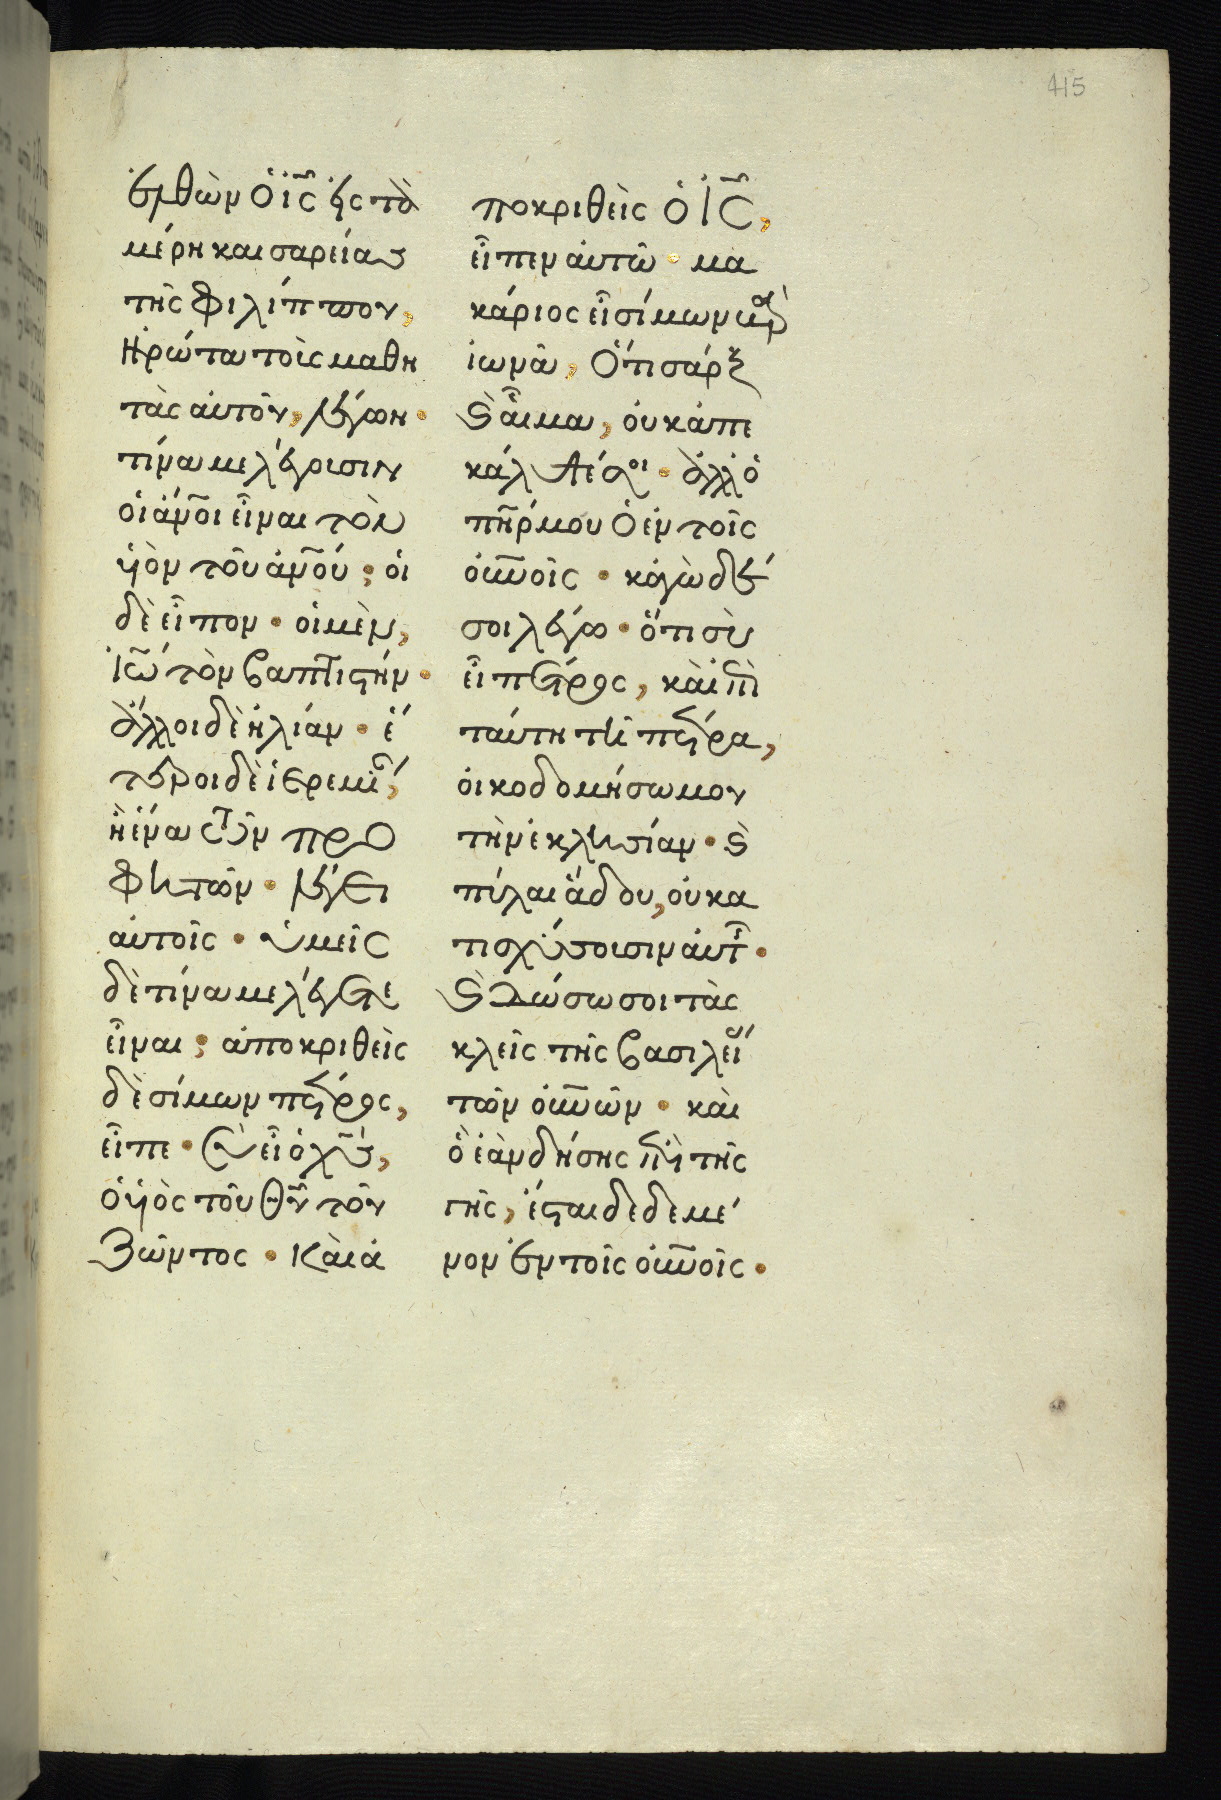 415
ἐλθὼν ὁ ἰς εἰς τὰ
μέρη καισαρείας
τῆς φιλίππου,
Ηρώτα τοὺς μαθη
τὰς αὐτοῦ, λέγων·
τίνα με λέγουσιν
οἱ ἀνοι εἶναι τὸν
υἱὸν τοῦ ἀνου; οἱ
δὲ εἶπον· οἱ μὲν,
ἰω τὸν βαπτιστήν·
ἄλλοι δὲ ἠλίαν· ἕ
τεροι δὲ ἱερεμί,
ἢ ἕνα τῶν προ
φητῶν· λέγει
αὐτοῖς· ὑμεῖς
δὲ τίνα με λέγετε
εἶναι; ἀποκριθεὶς
δὲ σίμων πέτρος,
εἶπε· Σὺ εἶ ὁ χς,
ὁ υἱὸς τοῦ θυ τοῦ
ζῶντος· Καὶ ἀ
ποκριθεὶς ὁ ΙΣ,
εἶπεν αὐτῶ· μα
κάριος εἶ σίμων βὰρ
ἰωνᾶ, Ότι σάρξ
καὶ αἷμα, οὐκ ἀπε
κάλυψέ σοι· ἀλλ' ὁ
πηρ μου ὁ ἐν τοῖς
οὐνοῖς· κἀγὼ δέ
σοι λέγω· ὅτι σὺ
εἶ πέτρος, καὶ ἐπὶ
ταύτη τῆ πέτρα,
οἰκοδομήσω μου
τὴν ἐκλησίαν· καὶ
πύλαι ἅδου, οὐ κα
τισχύσουσιν αὐτῆς·
καὶ δώσω σοι τὰς
κλεῖς τῆς βασιλεί
τῶν οὐνῶν· καὶ
ὃ ἐὰν δήσης ἐπὶ τῆς
γῆς, ἔσται δεδεμέ
νον ἐν τοῖς οὐνοῖς·